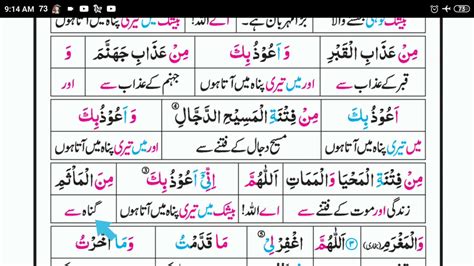 9:14 AM 73
بیشک توہی بخشنے والا بڑا مہربان ہے۔ اے اللہ! بیشک میں تیری پناہ میں آتا ہوں
مِنْ عَذَابِ الْقَبْرِ وَ اَعُوْذُ بِكَ مِنْ عَذَابِ جَهَنَّمَ وَ
قبر کے عذاب سے اور میں تیری پناہ میں آتا ہوں جہنم کے عذاب سے اور
اَعُوْذُ بِكَ مِنْ فِتْنَةِ الْمَسِيْحِ الدَّجَّالِ④ وَ اَعُوْذُ بِكَ
میں تیری پناہ میں آتا ہوں مسیح دجال کے فتنے سے اور میں تیری پناہ میں آتا ہوں
مِنْ فِتْنَةِ الْمَحْيَا وَالْمَمَاتِ اَللّٰهُمَّ اِنِّىْٓ③ اَعُوْذُ بِكَ مِنَ الْمَأْثَمِ
زندگی اور موت کے فتنے سے اے اللہ! بیشک میں تیری پناہ میں آتا ہوں گناہ سے
وَالْمَغْرَمِ (بخاری) (۳) اَللّٰهُمَّ اغْفِرْ لِىْ⑤ مَا قَدَّمْتُ وَمَا اَخَّرْتُ